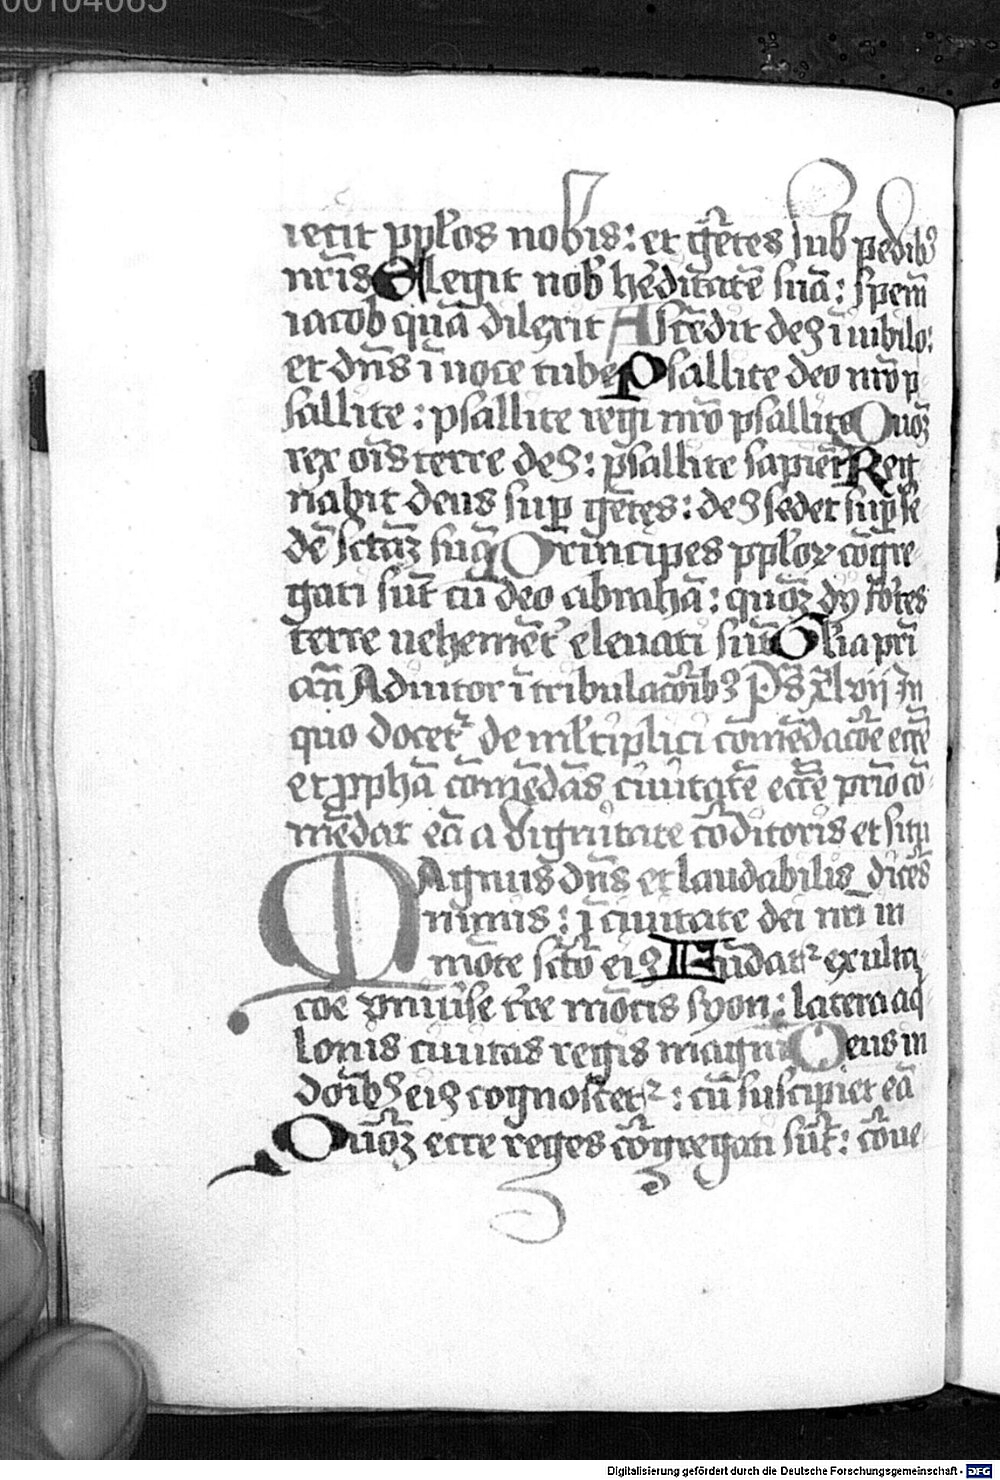 00104065
iecit ppl̃os nobis: et gẽtes sub pedibꝰ
nr̃is Elegit nob̾ hẽditatẽ suã: spem̃
iacob quã dilexit Ascẽdit deꝰ ĩ iubilo:
et dñs ĩ uoce tube Psallite deo nrõ p
sallite: psallite regi nrõ psallite Quõꝫ
rex oĩs terre deꝰ: psallite sapiẽt̾ Reg
nabit deus sup̱ gẽtes: deꝰ sedet sup̱ se
dẽ sctãꝫ suã Principes ppl̃oꝝ cõgre
gati sũt cũ deo abrahã: quõꝫ dij fortes
terre uehemẽt̾ eleuati sũt Gl̃ia pr̃i
añ Adiutor ĩ tribulacõibꝫ Ps̃ xlvij In
quo docet̾ de ml̃tiplici cõmẽdacõe eccẽ
et ꝓphã cõmẽdãs ciuitatẽ eccẽ primo cõ
mẽdat eã a dignitate cõditoris et situ
MAgnus dñs et laudabilis
nimis: ĩ ciuitate dei nr̃i in
mõte sctõ eiꝰ Fũdat̾ exulta
cõe vniũse tr̃e mõtis syon: latera aq̃
lonis ciuitas regis magni Deus in
doĩbꝰ eiꝰ cognoscet̾: cũ suscipiet eã
Quõꝫ ecce reges cõgregati sũt: cõue
Digitalisierung gefördert durch die Deutsche Forschungsgemeinschaft - DFG